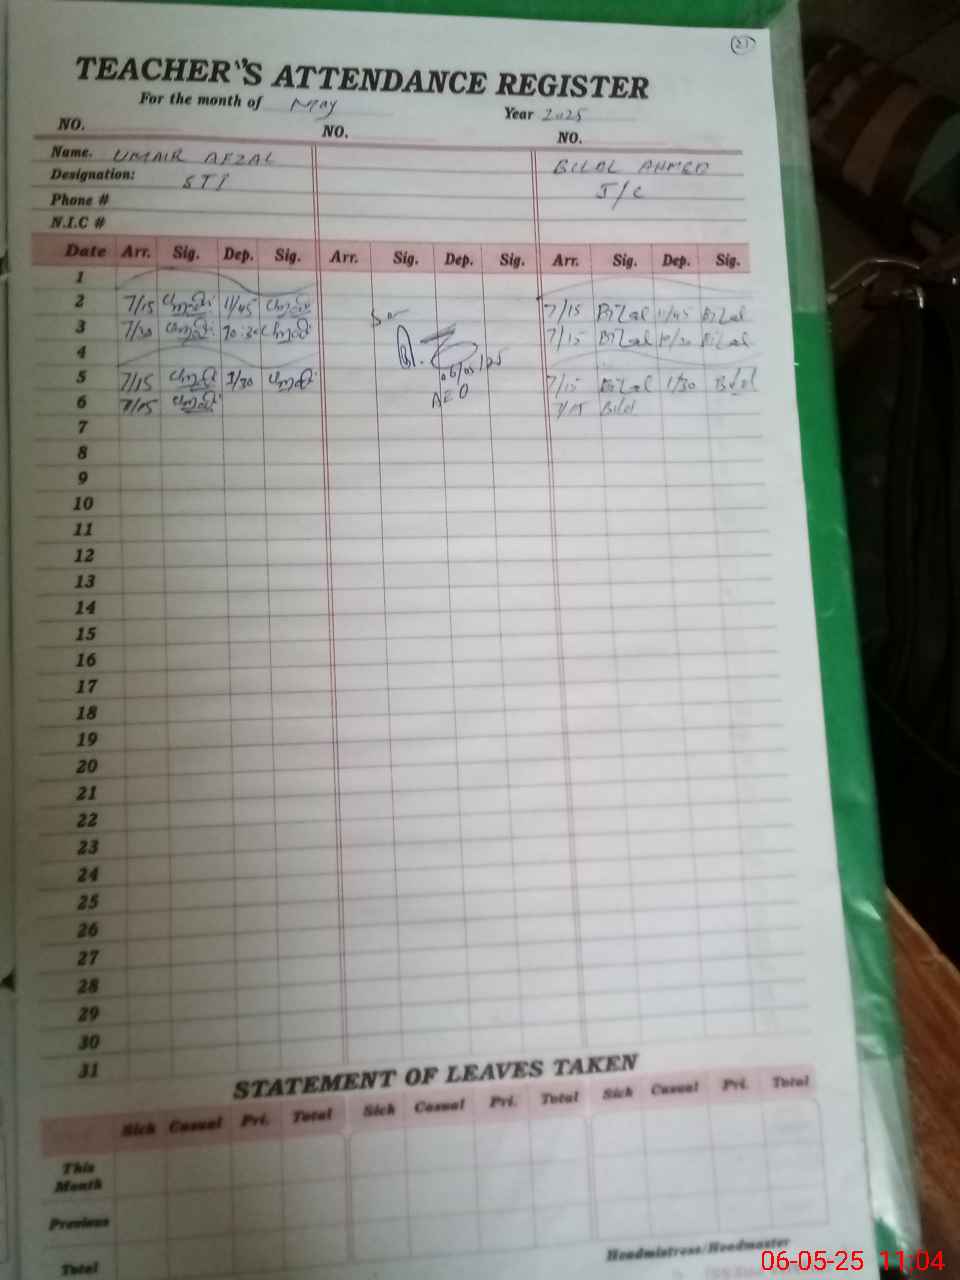 21
TEACHER"S ATTENDANCE REGISTER
For the month of May Year 2025
NO. NO. NO.
Name. UMAIR AFZAL BILAL AHMED
Designation: STI J/C
Phone #
N.I.C #
Date Arr. Sig. Dep. Sig. Arr. Sig. Dep. Sig. Arr. Sig. Dep. Sig.
1
2 7/15 11/45 7/15 Bilal 11/45 Bilal
3 7/30 10:30 7/15 Bilal 10/30 Bilal
4
5 7/15 1/30 7/15 Bilal 1/30 Bilal
06/05/25
6 7/15 AEO 7/15 Bilal
7
8
9
10
11
12
13
14
15
16
17
18
19
20
21
22
23
24
25
26
27
28
29
30
31
STATEMENT OF LEAVES TAKEN
Sick Casual Pri. Total Sick Casual Pri. Total Sick Casual Pri. Total
This
Month
Previous
Total
Headmistress/Headmaster
06-05-25 11:04